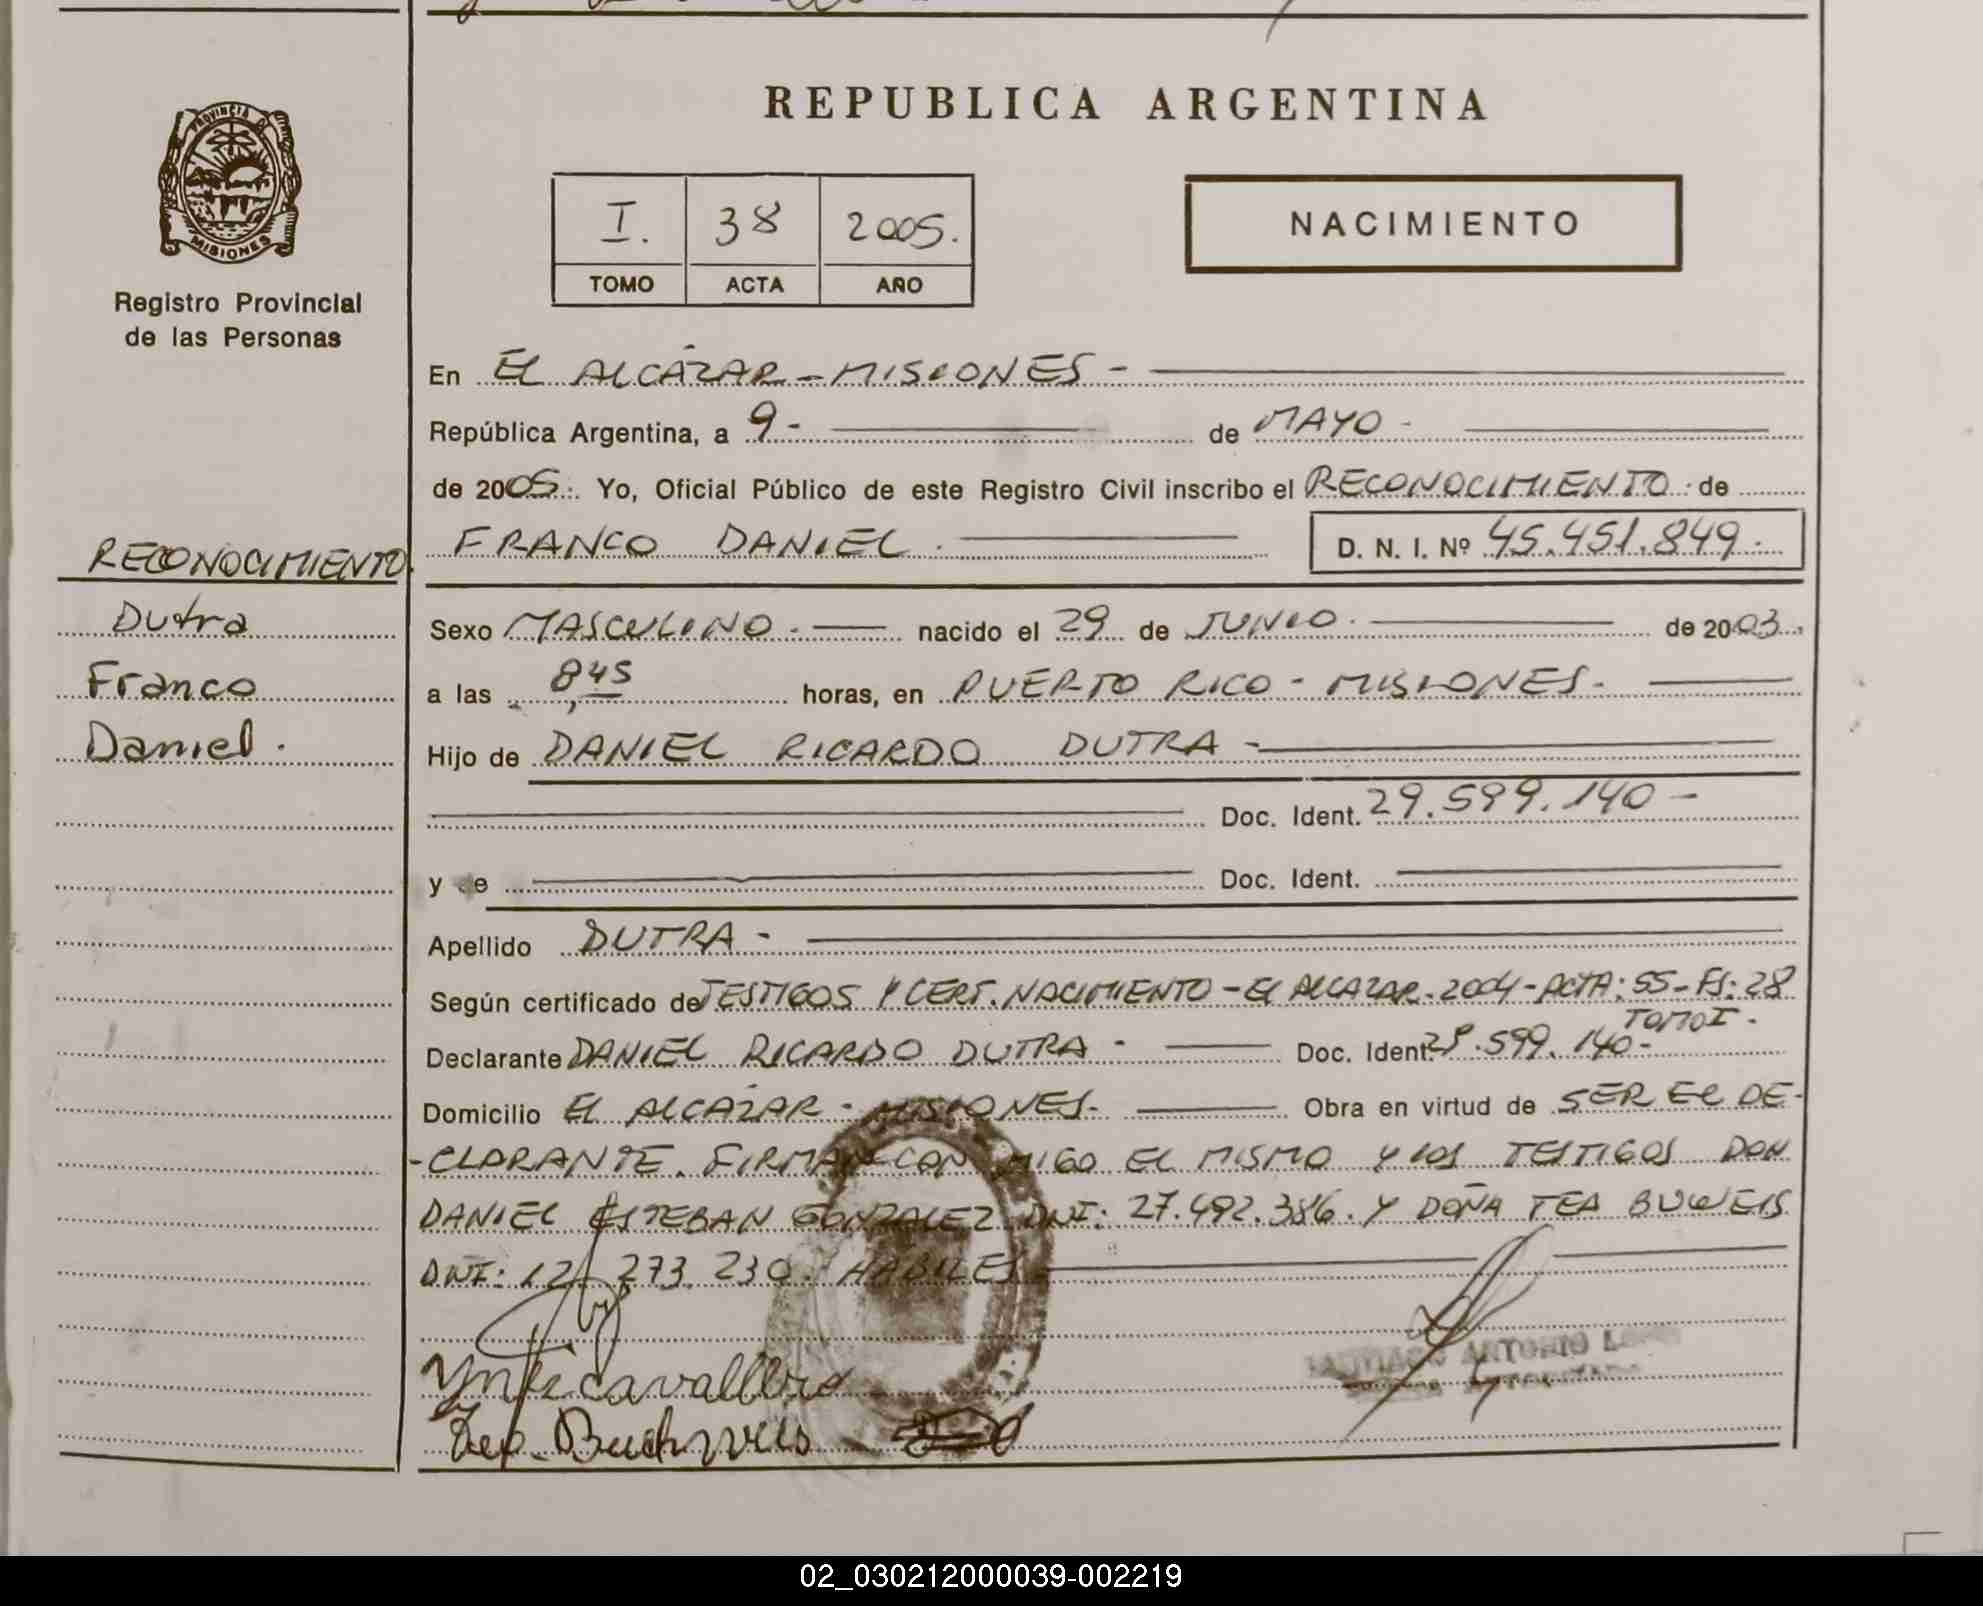 REPUBLICA ARGENTINA
PROVINCIA D
MISIONES
Registro Provincial
de las Personas
I. 38 2005.
TOMO ACTA AÑO
NACIMIENTO
En EL ALCÁZAR - MISIONES -
República Argentina, a 9 - de MAYO -
de 2005. Yo, Oficial Público de este Registro Civil inscribo el RECONOCIMIENTO de
FRANCO DANIEL. D. N. I. Nº 45.451.849.
RECONOCIMIENTO
Dutra
Franco
Daniel.
Sexo MASCULINO. nacido el 29 de JUNIO. de 2003.
a las 8,45 horas, en PUERTO RICO - MISIONES.
Hijo de DANIEL RICARDO DUTRA -
Doc. Ident. 29.599.140 -
y de Doc. Ident.
Apellido DUTRA -
Según certificado de TESTIGOS Y CERT. NACIMIENTO - EL ALCAZAR - 2004 - ACTA: 55 - FS: 28
TOMO I.
Declarante DANIEL RICARDO DUTRA - Doc. Ident. 29.599.140-
Domicilio EL ALCÁZAR - MISIONES. Obra en virtud de SER EL DE-
-CLARANTE. FIRMAN CONMIGO EL MISMO Y LOS TESTIGOS DON
DANIEL ESTEBAN GONZALEZ DNI: 27.492.386. Y DOÑA TEA BUWEIS
DNI: 12.273.230. HABILES
ANTONIO
02_030212000039-002219